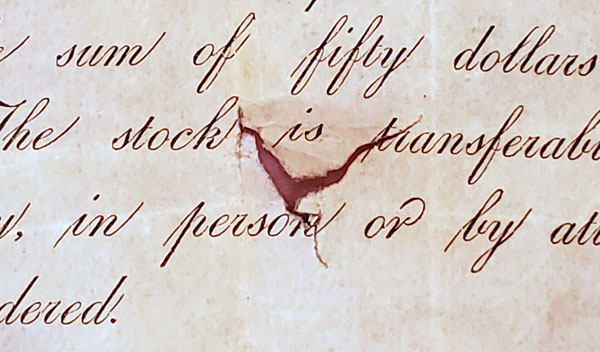 sum of fifty dollars
The stock is transferabl
y, in person or by att
dered.